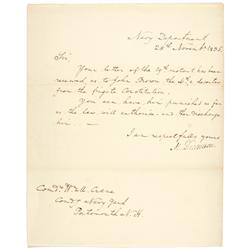 Navy Department
24th Novemr 1835.
Sir,
Your letter of the 19th instant has been
received, as to John Brown the 2d, a deserter
from the frigate Constitution.
You can have him punished as far
as the law will authorise and then discharge
him.
I am respectfully yours
M. Dickerson
Comdr. W. M. Crane
Comdt. Navy Yard
Portsmouth N.H.